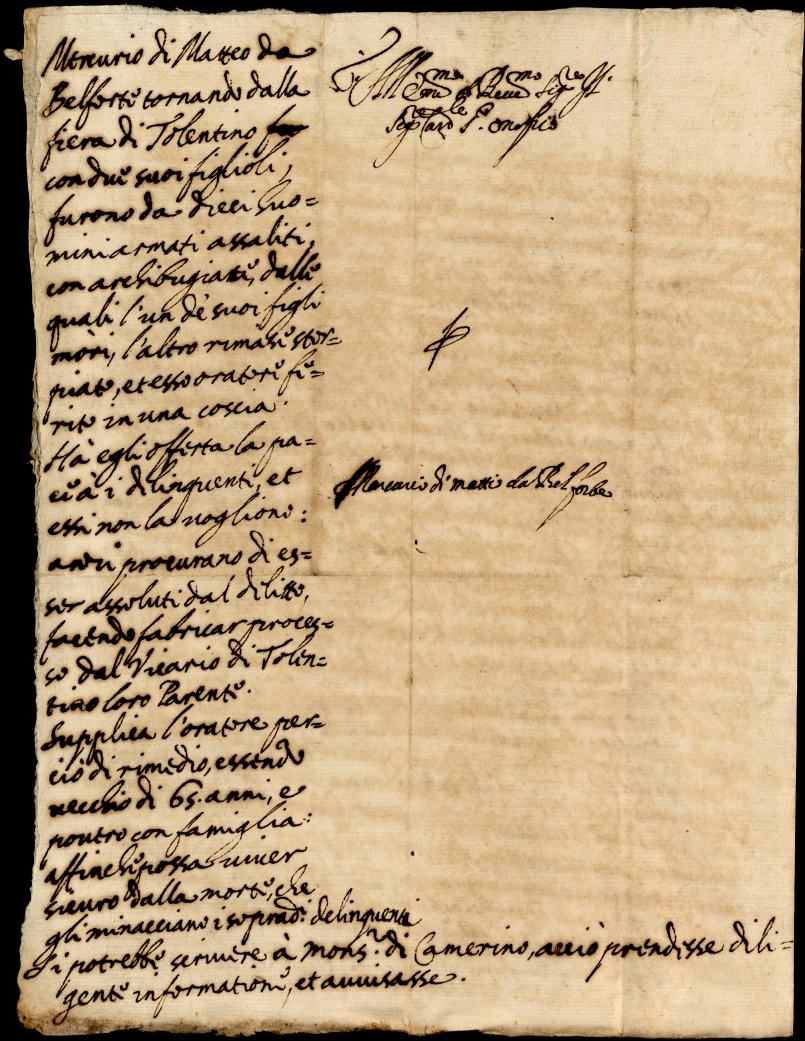 Mercurio di Matteo da
Belforte tornando dalla
fiera di Tolentino
con due suoi figlioli,
furono da dieci huo=
mini armati assaliti,
con archibugiate, dalle
quali l'un de suoi figli
mori, l'altro rimase stor=
piato, et esso oratore fe=
rito in una coscia.
Hà egli offerta la pa=
ce à i delinquenti, et
essi non la vogliono:
anzi procurano di es=
ser assoluti dal delitto,
facendo fabricar proces=
so dal Vicario di Tolen=
tino loro Parente.
Supplica l'oratore per=
ciò di rimedio, essendo
vecchio di 65. anni, e
povero con famiglia:
affinche possa viver
sicuro dalla morte, che
gli minacciano i soprad.i delinquenti
Si potrebbe scrivere à Mons.r di Camerino, acciò prendesse dili=
gente informatione, et avvisasse.
Ill.mo et Rev.mo Sig.re
Sig.r Card.le S. Onofrio
Mercurio di Matteo da Belforte